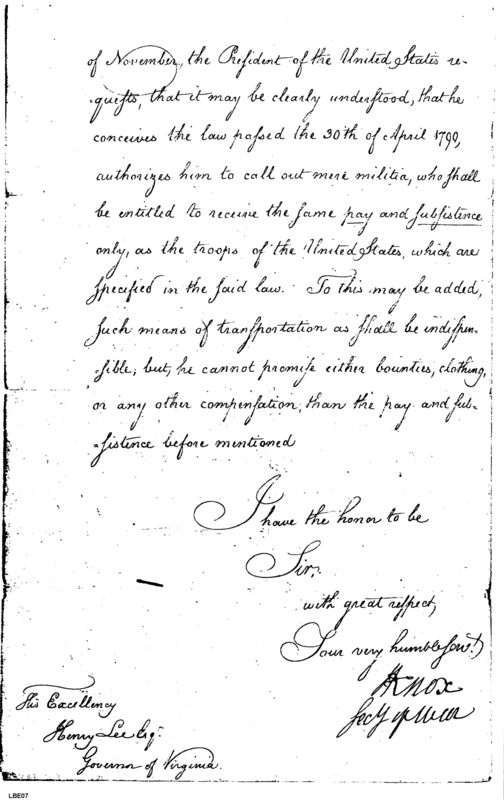 of November, the President of the United States re-
-quests, that it may be clearly understood, that he
conceives the law passed the 30th of April 1790,
authorizes him to call out mere militia, who shall
be entitled to receive the same pay and subsistence
only, as the troops of the United States, which are
specified in the said law. To this may be added,
such means of transportation as shall be indispen-
-sible; but, he cannot promise either bounties, clothing,
or any other compensation, than the pay and sub-
-sistence before mentioned
I have the honor to be
Sir,
with great respect,
Your very humble Servt.
HKnox
Secy of War
His Excellency
Henry Lee Esqr.
Governor of Virginia.
LBE07